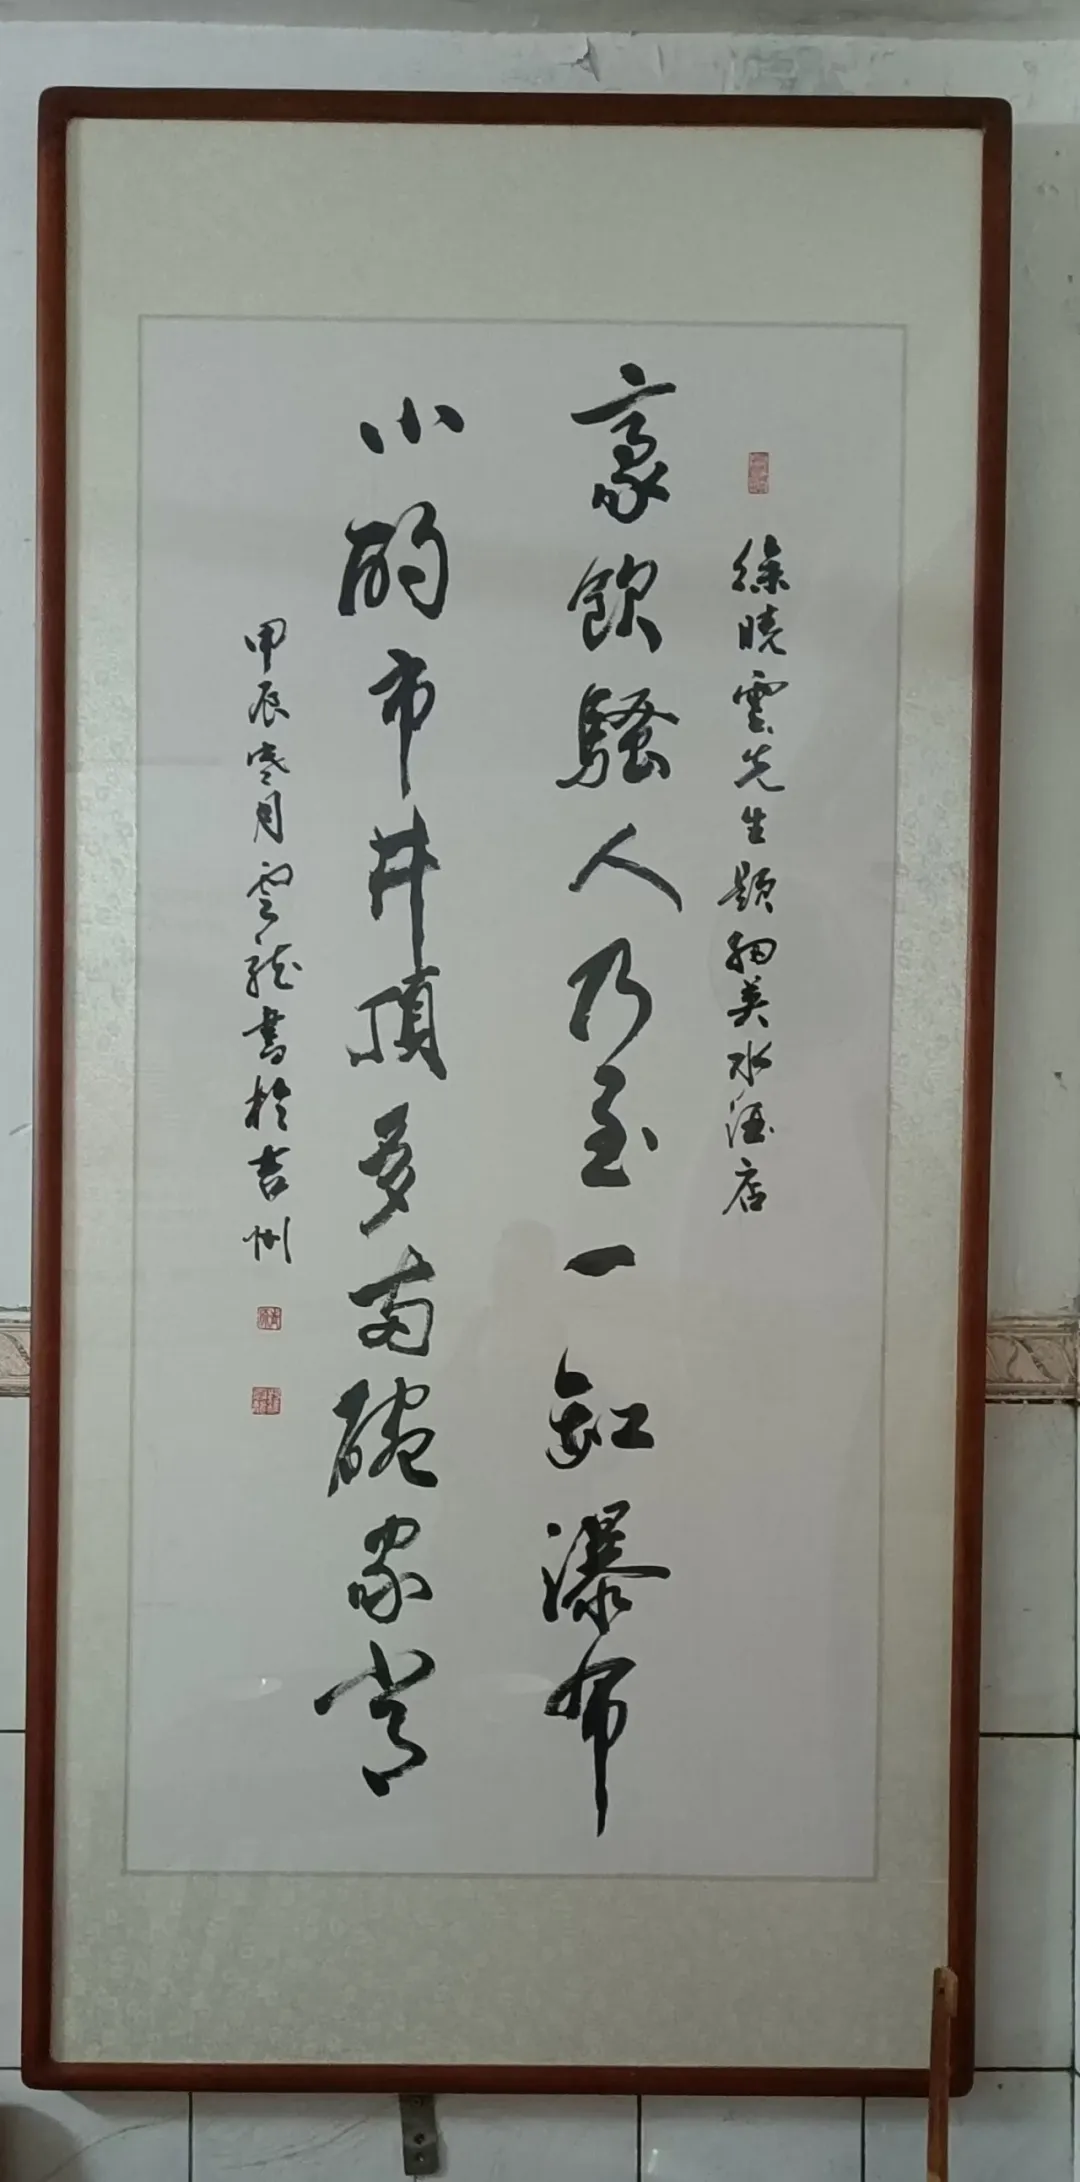 徐曉雲先生題細英水酒店
豪飲騷人乃至一缸瀑布
小酌市井頂多兩碗家常
甲辰寒月雲龍書於吉州